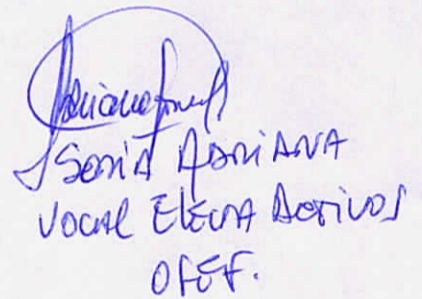 SORIA ADRIANA
VOCAL ELECTA ACTIVOS
OFEF.